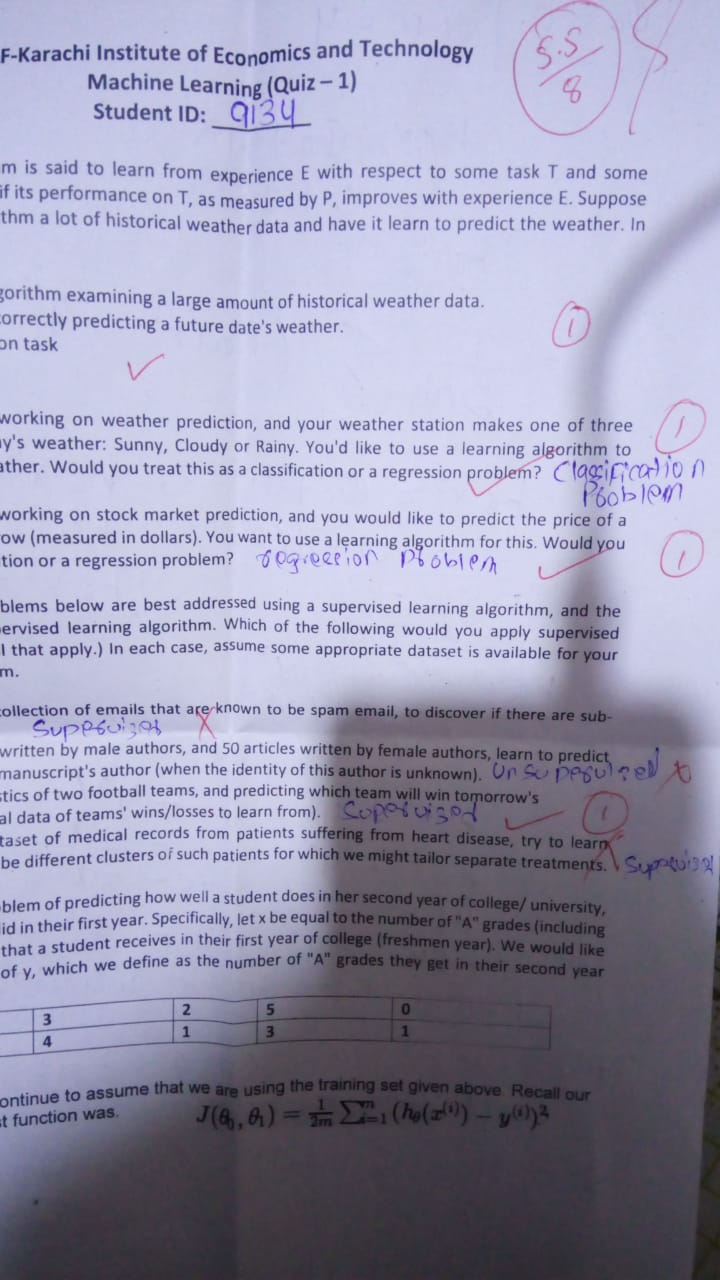 F-Karachi Institute of Economics and Technology
Machine Learning (Quiz – 1)
5.5
8
Student ID: 9134
m is said to learn from experience E with respect to some task T and some
if its performance on T, as measured by P, improves with experience E. Suppose
thm a lot of historical weather data and have it learn to predict the weather. In
gorithm examining a large amount of historical weather data.
correctly predicting a future date's weather.
1
on task
working on weather prediction, and your weather station makes one of three
1
ay's weather: Sunny, Cloudy or Rainy. You'd like to use a learning algorithm to
ather. Would you treat this as a classification or a regression problem? Classification
Problem
working on stock market prediction, and you would like to predict the price of a
ow (measured in dollars). You want to use a learning algorithm for this. Would you
1
tion or a regression problem? regression Problem
blems below are best addressed using a supervised learning algorithm, and the
ervised learning algorithm. Which of the following would you apply supervised
l that apply.) In each case, assume some appropriate dataset is available for your
m.
collection of emails that are known to be spam email, to discover if there are sub-
written by male authors, and 50 articles written by female authors, learn to predict
manuscript's author (when the identity of this author is unknown).
stics of two football teams, and predicting which team will win tomorrow's
al data of teams' wins/losses to learn from). Supervized
1
taset of medical records from patients suffering from heart disease, try to learn
be different clusters of such patients for which we might tailor separate treatments.
blem of predicting how well a student does in her second year of college/ university,
id in their first year. Specifically, let x be equal to the number of "A" grades (including
that a student receives in their first year of college (freshmen year). We would like
of y, which we define as the number of "A" grades they get in their second year
3 2 5 0
4 1 3 1
ontinue to assume that we are using the training set given above. Recall our
t function was. J(θ₀, θ₁) = 1/2m Σᵐᵢ₌₁ (hθ(x⁽ⁱ⁾) – y⁽ⁱ⁾)²